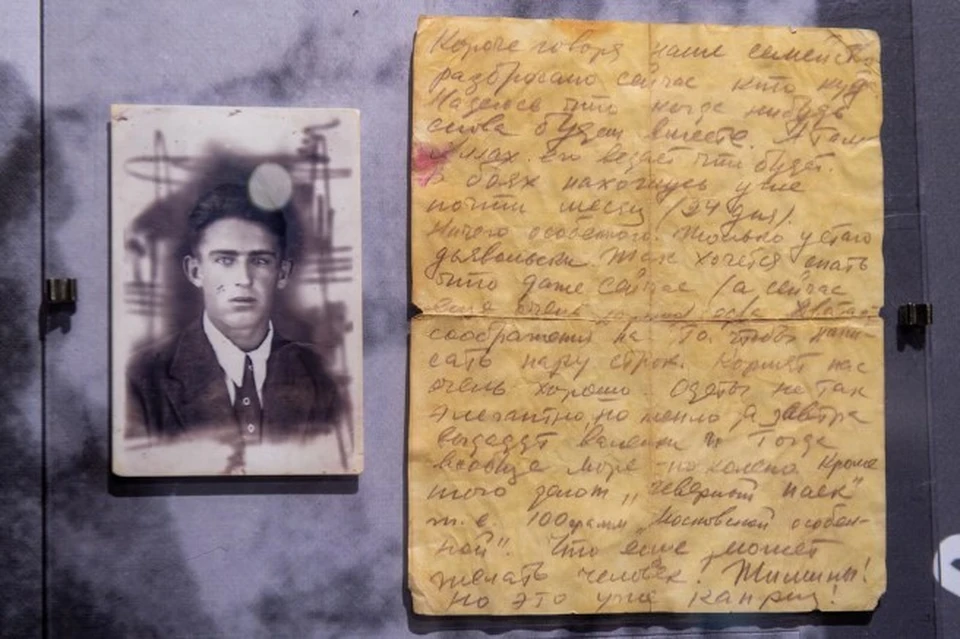 Короче говоря наше семейство
разбросано сейчас кто куд
Надеюсь что когда нибудь
снова будем вместе. А там
Аллах его ведает что будет.
В боях нахожусь уже
почти месяц (24 дня).
Ничего особенного. Только устаю
дьявольски. Так хочется спать
что даже сейчас (а сейчас
еще очень хорошо) едва хватает
соображения на то, чтобы напи-
сать пару строк. Кормят нас
очень хорошо. Одеты не так
элегантно, но тепло, а завтра
выдадут валенки и тогда
вообще море по колено. Кроме
того дают „четвертый паек"
т.е. 100 грамм „Московской особен-
ной". Что еще может
желать человек! Тишины!
Но это уже каприз!